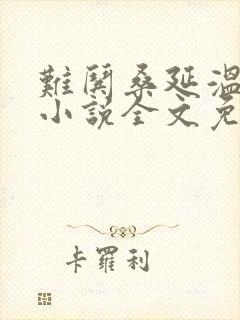 難鬨桑延溫
小說全文免
卡羅利